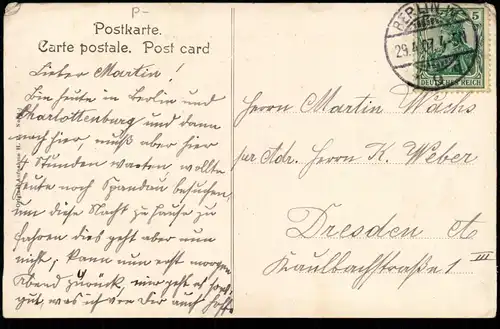 P-
Postkarte.
Carte postale. Post card
BERLIN. W.
29.4.07. 4-5N.
5
DEUTSCHES REICH
Lieber Martin!
Bin heute in Berlin und
Charlottenburg und dann
nach hier, muß aber hier
4 Stunden warten, wollte
heute noch Spandau besuchen,
um diese Nacht zu Hause zu
fahren dies geht aber nun
nicht, kann nun erst morgen
Abend zurück, mir geht es
gut, was ich von Dir auch hoffe
Herrn Martin Wachs
per Adr. Herrn K. Weber
Dresden A
Kaulbachstraße 1 III